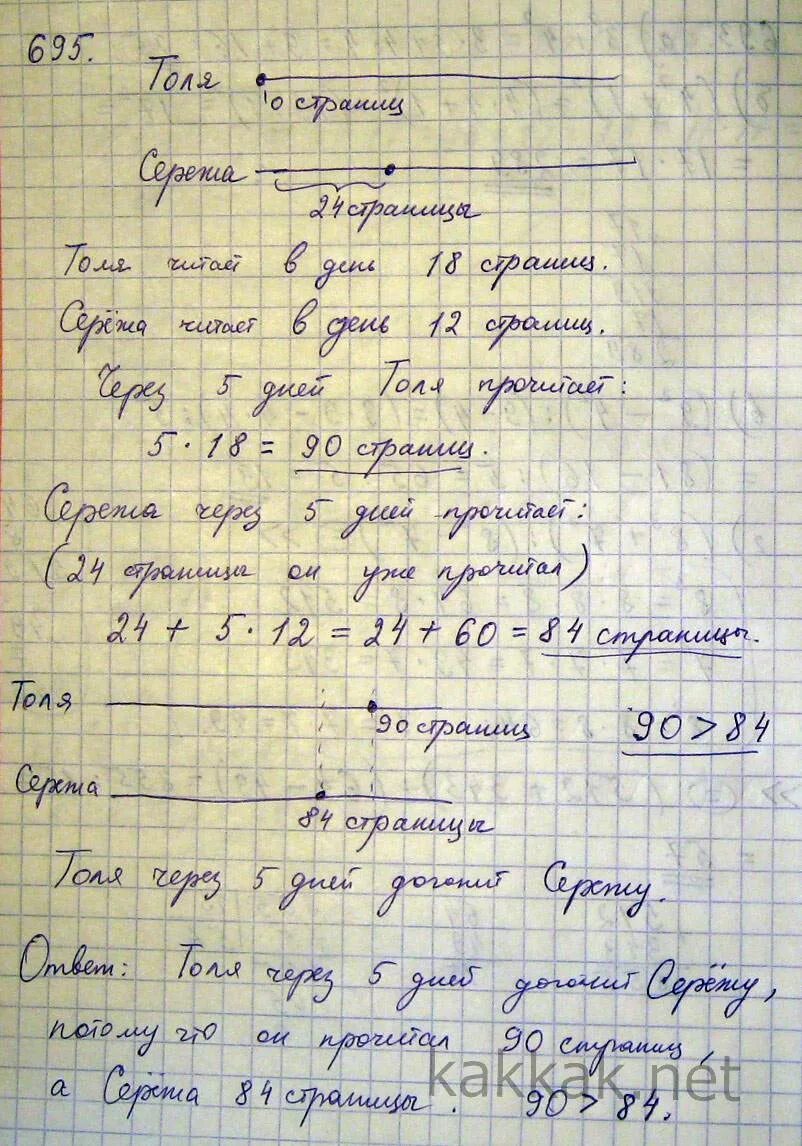 695.
Толя
0 страниц
Сережа
24 страницы
Толя читает в день 18 страниц.
Серёжа читает в день 12 страниц.
Через 5 дней Толя прочитает:
5 · 18 = 90 страниц.
Сережа через 5 дней прочитает:
(24 страницы он уже прочитал)
24 + 5 · 12 = 24 + 60 = 84 страницы.
Толя
90 страниц
90 > 84
Сережа
84 страницы
Толя через 5 дней догонит Сережу.
Ответ: Толя через 5 дней догонит Серёжу,
потому что он прочитал 90 страниц,
а Серёжа 84 страницы. 90 > 84.
kakkak.net